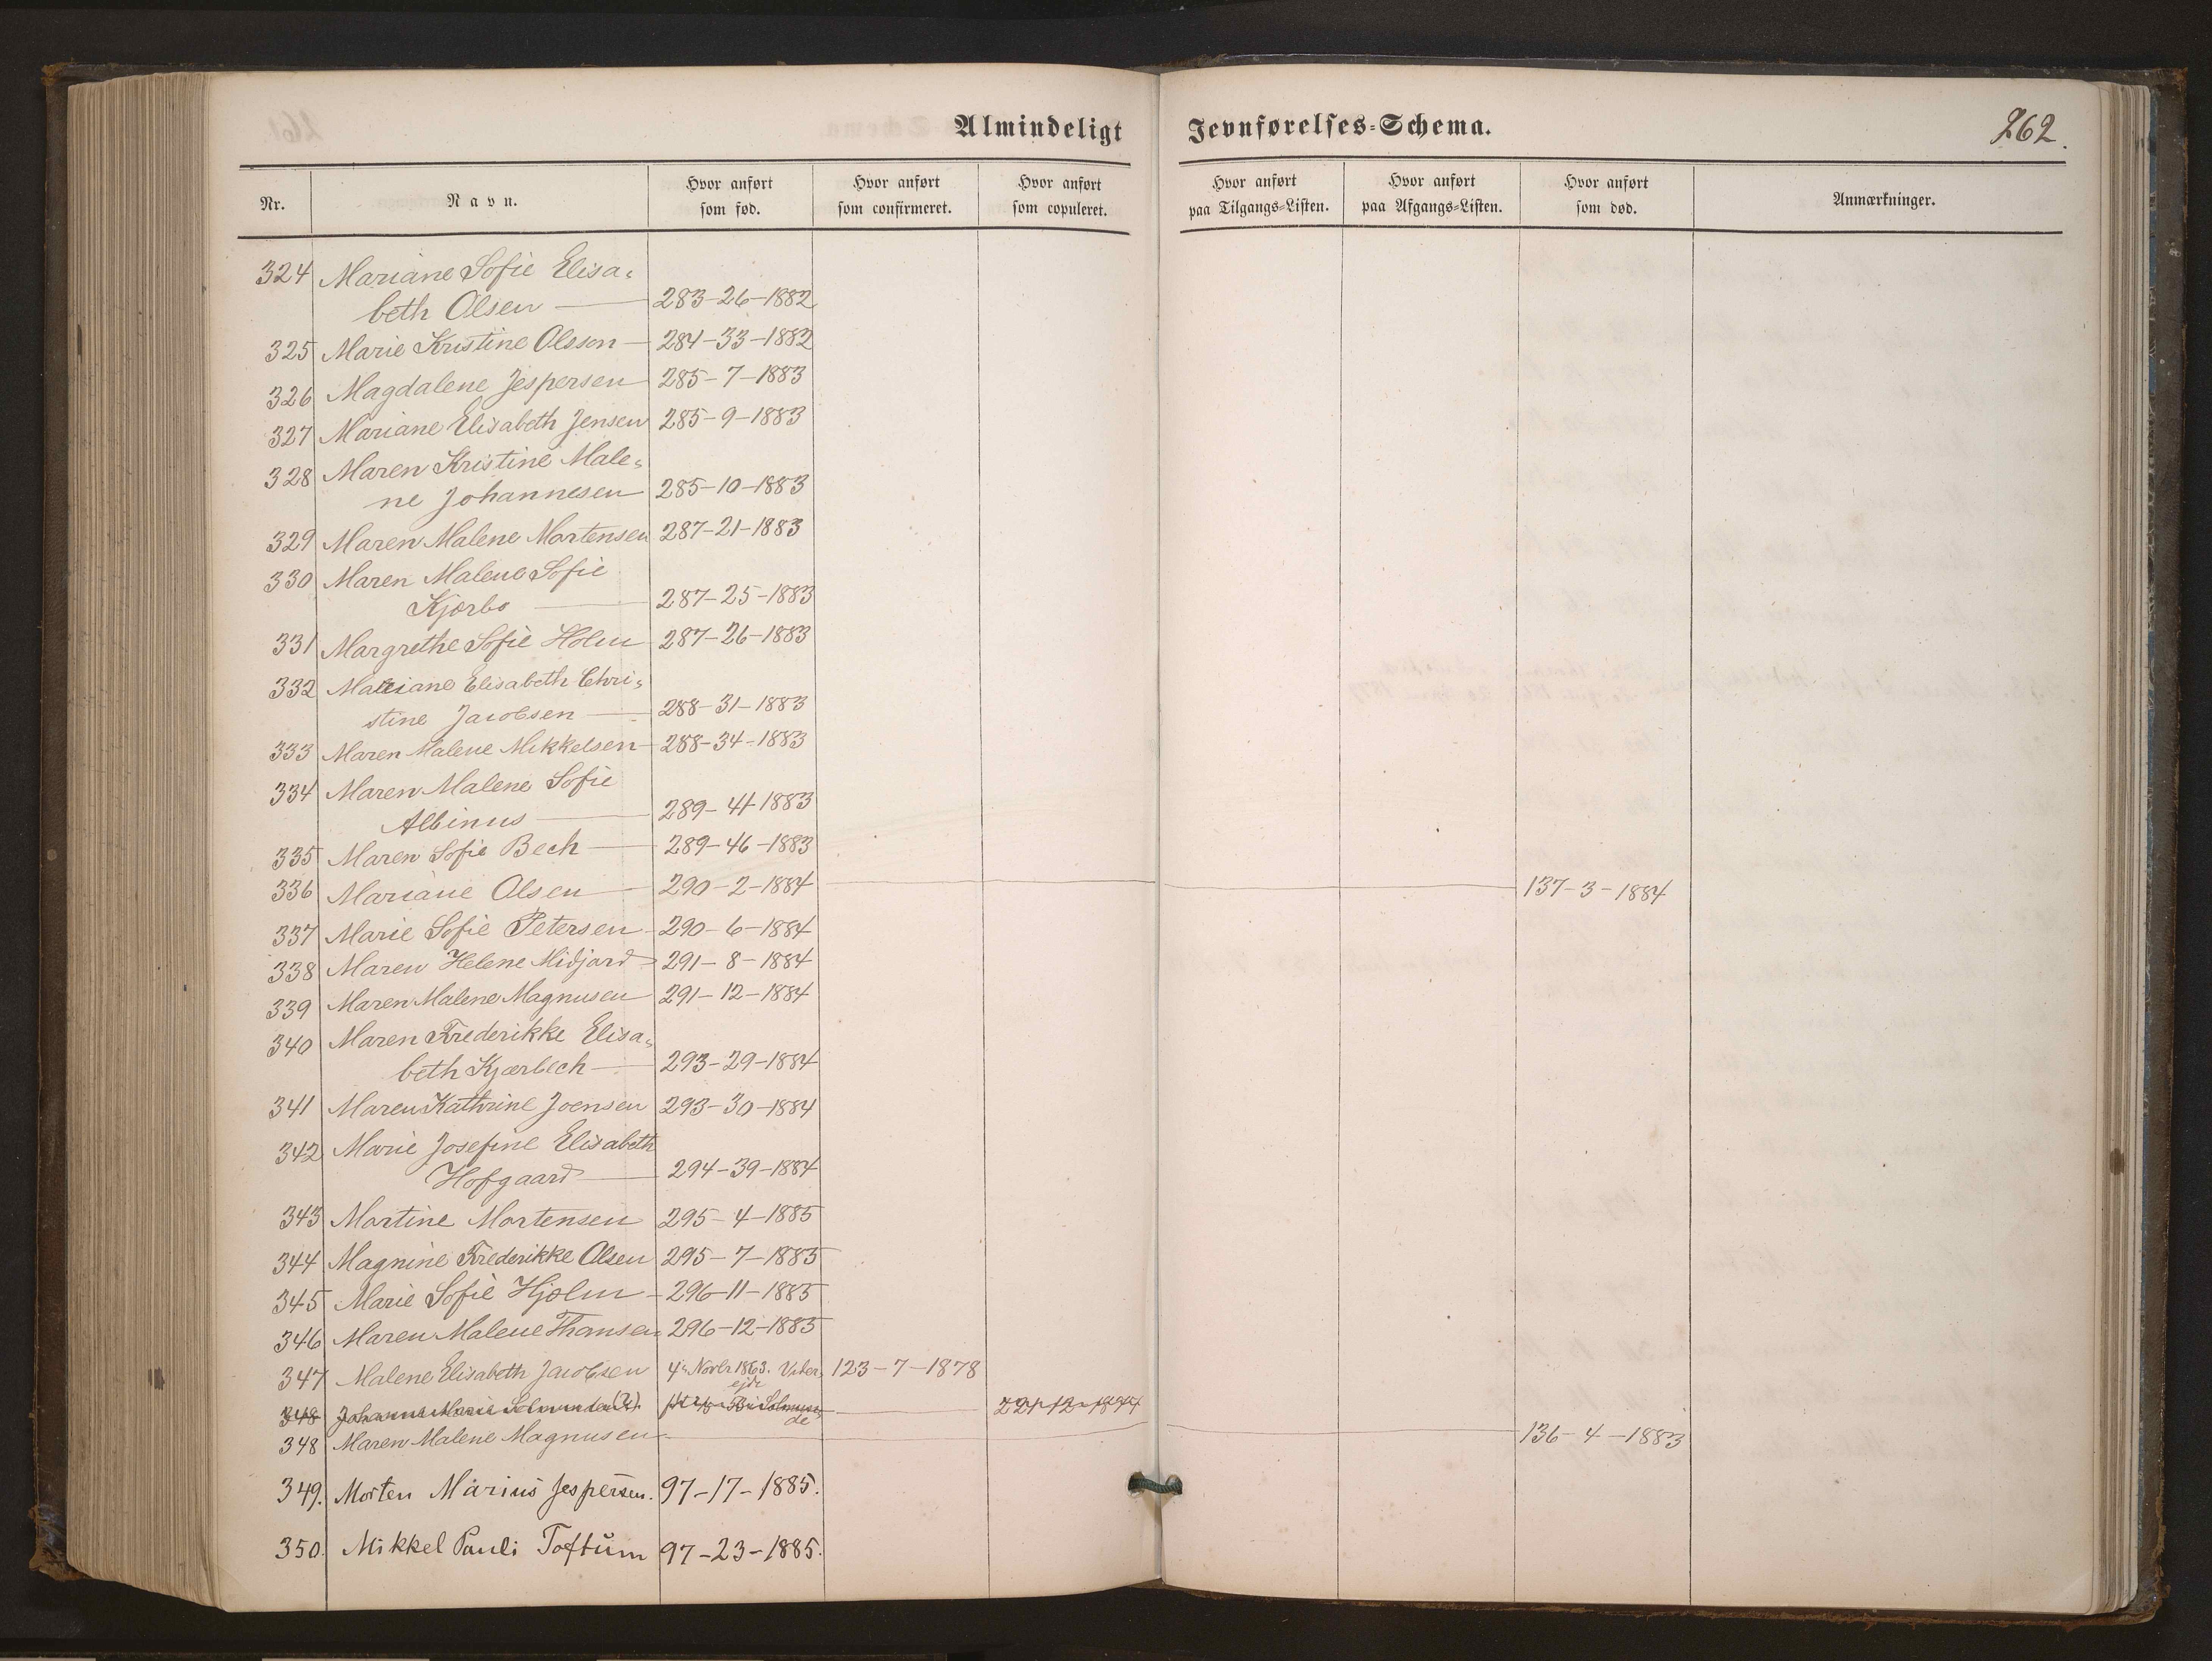 Almindeligt Jevnførelses-Schema.
262.
Nr.
Navn.
Hvor anført som fød.
Hvor anført som confirmeret.
Hvor anført som copuleret.
Hvor anført paa Tilgangs-Listen.
Hvor anført paa Afgangs-Listen.
Hvor anført som død.
Anmærkninger.
324 Mariane Sofie Elisa-
beth Olsen 283-26-1882
325 Marie Kristine Olsson 284-33-1882
326 Magdalene Jespersen 285-7-1883
327 Mariane Elisabeth Jensen 285-9-1883
328 Maren Kristine Male-
ne Johannesen 285-10-1883
329 Maren Malene Mortensen 287-21-1883
330 Maren Malene Sofie
Kjærbo 287-25-1883
331 Margrethe Sofie Holm 287-26-1883
332 Elisabeth Chri-
stine Jacobsen 288-31-1883
333 Maren Malene Mikkelsen 288-34-1883
334 Maren Malene Sofie
Albinus 289-41-1883
335 Maren Sofie Bech 289-46-1883
336 Mariane Olsen 290-2-1884 137-3-1884
337 Marie Sofie Petersen 290-6-1884
338 Maren Helene Midjord 291-8-1884
339 Maren Malene Magnusen 291-12-1884
340 Maren Frederikke Elisa-
beth Kjærbech 293-29-1884
341 Maren Kathrine Joensen 293-30-1884
342 Marie Josefine Elisabeth
Hofgaard 294-39-1884
343 Martine Mortensen 295-4-1885
344 Magnine Frederikke Olsen 295-7-1885
345 Marie Sofie Hjelm 296-11-1885
346 Maren Malene Thomsen 296-12-1885
347 Malene Elisabeth Jacobsen 4de Novbr 1863. 123-7-1878
348 Johanne Marie
348 Maren Malene Magnusen 136-4-1883
349. Morten Marius Jespersen. 97-17-1885.
350. Mikkel Pauli Toftum 97-23-1885.